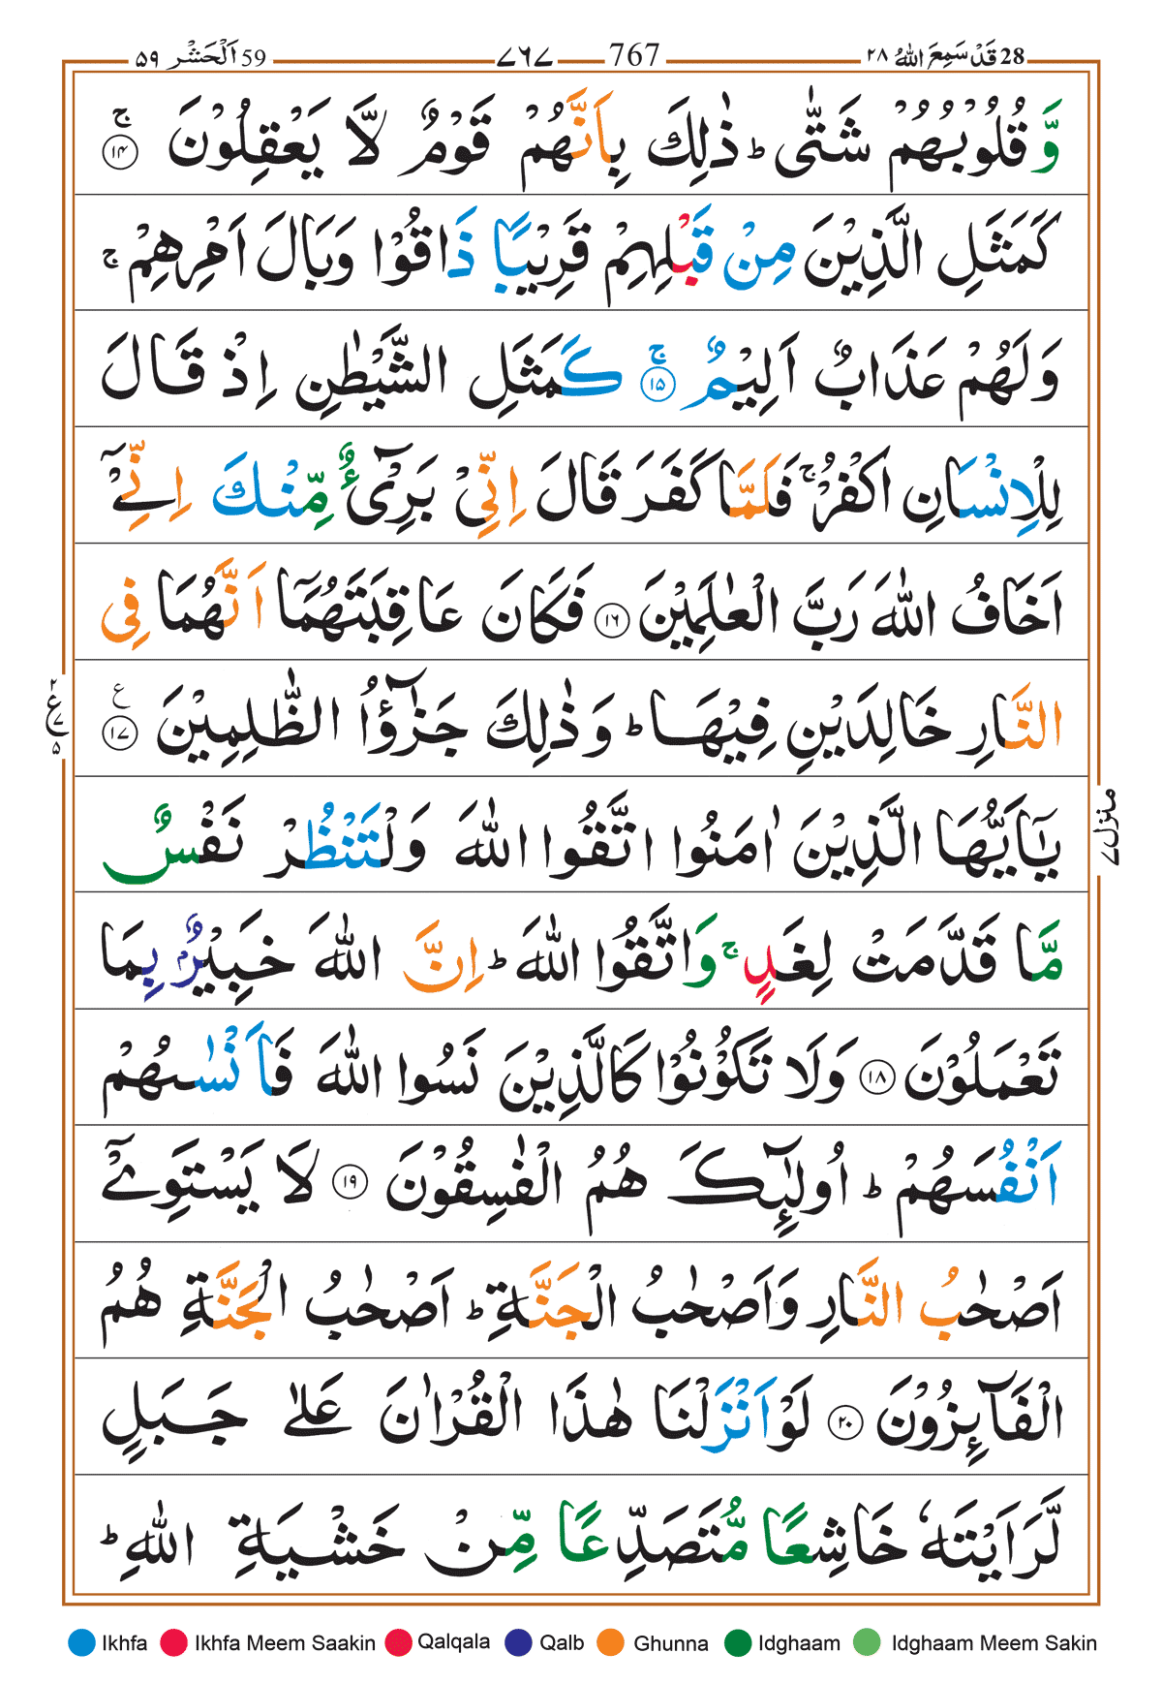 28 قَدْ سَمِعَ اللّٰهُ ۲۸ 767 ۷۶۷ 59 اَلْحَشْر ۵۹
وَّ قُلُوْبُهُمْ شَتّٰى ؕ ذٰلِكَ بِاَنَّهُمْ قَوْمٌ لَّا يَعْقِلُوْنَ ۚ ۱۴
كَمَثَلِ الَّذِيْنَ مِنْ قَبْلِهِمْ قَرِيْبًا ذَاقُوْا وَبَالَ اَمْرِهِمْ ۚ
وَلَهُمْ عَذَابٌ اَلِيْمٌ ۚ ۱۵ كَمَثَلِ الشَّيْطٰنِ اِذْ قَالَ
لِلْاِنْسَانِ اكْفُرْ ۚ فَلَمَّا كَفَرَ قَالَ اِنِّىْ بَرِىْٓءٌ مِّنْكَ اِنِّىْٓ
اَخَافُ اللّٰهَ رَبَّ الْعٰلَمِيْنَ ۱۶ فَكَانَ عَاقِبَتَهُمَاۤ اَنَّهُمَا فِى
النَّارِ خَالِدَيْنِ فِيْهَا ؕ وَذٰلِكَ جَزٰٓؤُا الظّٰلِمِيْنَ ۱۷ ع
ع ۲ ۷ ۵
يٰۤاَيُّهَا الَّذِيْنَ اٰمَنُوا اتَّقُوا اللّٰهَ وَلْتَنْظُرْ نَفْسٌ
منزل ۷
مَّا قَدَّمَتْ لِغَدٍ ۚ وَاتَّقُوا اللّٰهَ ؕ اِنَّ اللّٰهَ خَبِيْرٌۢ بِمَا
تَعْمَلُوْنَ ۱۸ وَلَا تَكُوْنُوْا كَالَّذِيْنَ نَسُوا اللّٰهَ فَاَنْسٰىهُمْ
اَنْفُسَهُمْ ؕ اُولٰٓئِكَ هُمُ الْفٰسِقُوْنَ ۱۹ لَا يَسْتَوِىْٓ
اَصْحٰبُ النَّارِ وَاَصْحٰبُ الْجَنَّةِ ؕ اَصْحٰبُ الْجَنَّةِ هُمُ
الْفَآئِزُوْنَ ۲۰ لَوْ اَنْزَلْنَا هٰذَا الْقُرْاٰنَ عَلٰى جَبَلٍ
لَّرَاَيْتَهٗ خَاشِعًا مُّتَصَدِّعًا مِّنْ خَشْيَةِ اللّٰهِ ؕ
Ikhfa Ikhfa Meem Saakin Qalqala Qalb Ghunna Idghaam Idghaam Meem Sakin